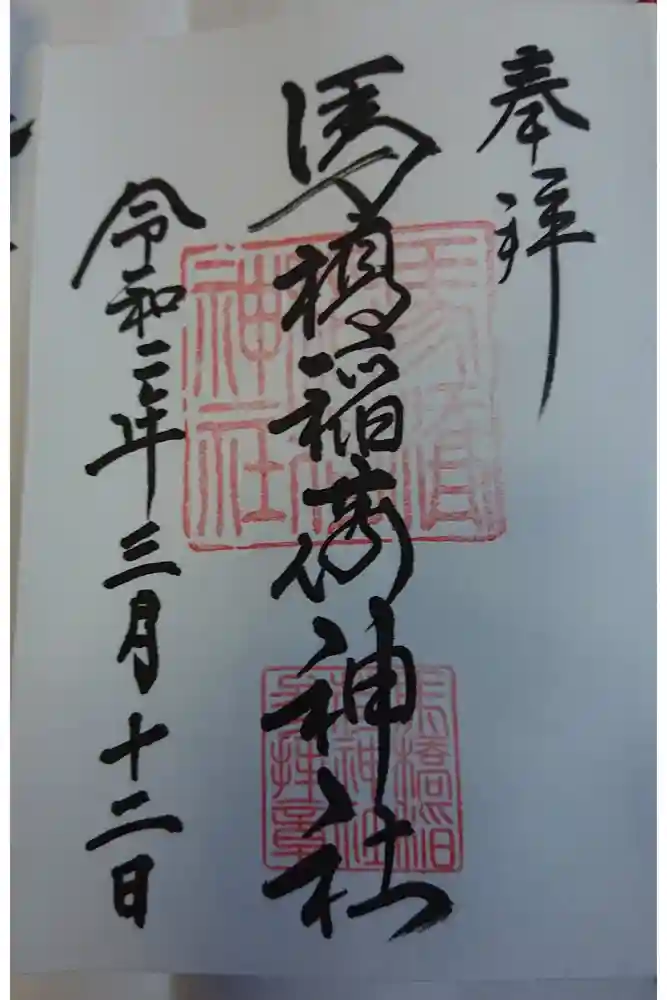 奉拝
馬橋稲荷神社
令和二年三月十二日
馬橋
稲荷
神社
馬橋稲
荷神社
参拝章